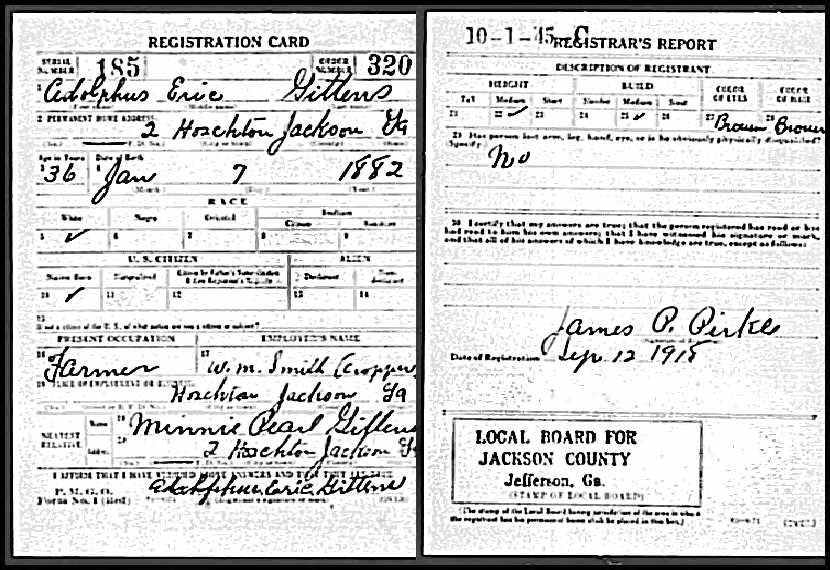 REGISTRATION CARD
SERIAL NUMBER 185 ORDER NUMBER 320
1 Adolphus Eric Gittens
2 PERMANENT HOME ADDRESS
2 Hoschton Jackson Ga
Age in Years Date of Birth
36 Jan 7 1882
(Month) (Day) (Year)
RACE
White Negro Oriental Indian
Citizen Noncitizen
5 ✓ 6 7 8 9
U. S. CITIZEN ALIEN
Native Born Naturalized Declarant Non-declarant
10 ✓ 11 12 13 14
15
PRESENT OCCUPATION EMPLOYER'S NAME
16 Farmer 17 W. M. Smith (cropper)
Hoschton Jackson Ga
NEAREST RELATIVE Name 19 Minnie Pearl Gittens
20 2 Hoschton Jackson Ga
P. M. G. O.
Form No. 1 (Red) Adolphus Eric Gittens
10-1-45-C REGISTRAR'S REPORT
DESCRIPTION OF REGISTRANT
HEIGHT BUILD COLOR OF EYES COLOR OF HAIR
Tall Medium Short Slender Medium Stout
21 22 ✓ 23 24 25 ✓ 26 27 Brown 28 Brown
29 Has person lost arm, leg, hand, eye, or is he obviously physically disqualified?
(Specify.) No
30 I certify that my answers are true; that the person registered has read or has
had read to him his own answers; that I have witnessed his signature or mark,
and that all of his answers of which I have knowledge are true, except as follows:
James P. Pirkle
Date of Registration Sep 12 1918
LOCAL BOARD FOR
JACKSON COUNTY
Jefferson, Ga.
(STAMP OF LOCAL BOARD)
(The stamp of the Local Board having jurisdiction of the area in which
the registrant has his permanent home shall be placed in this box.)